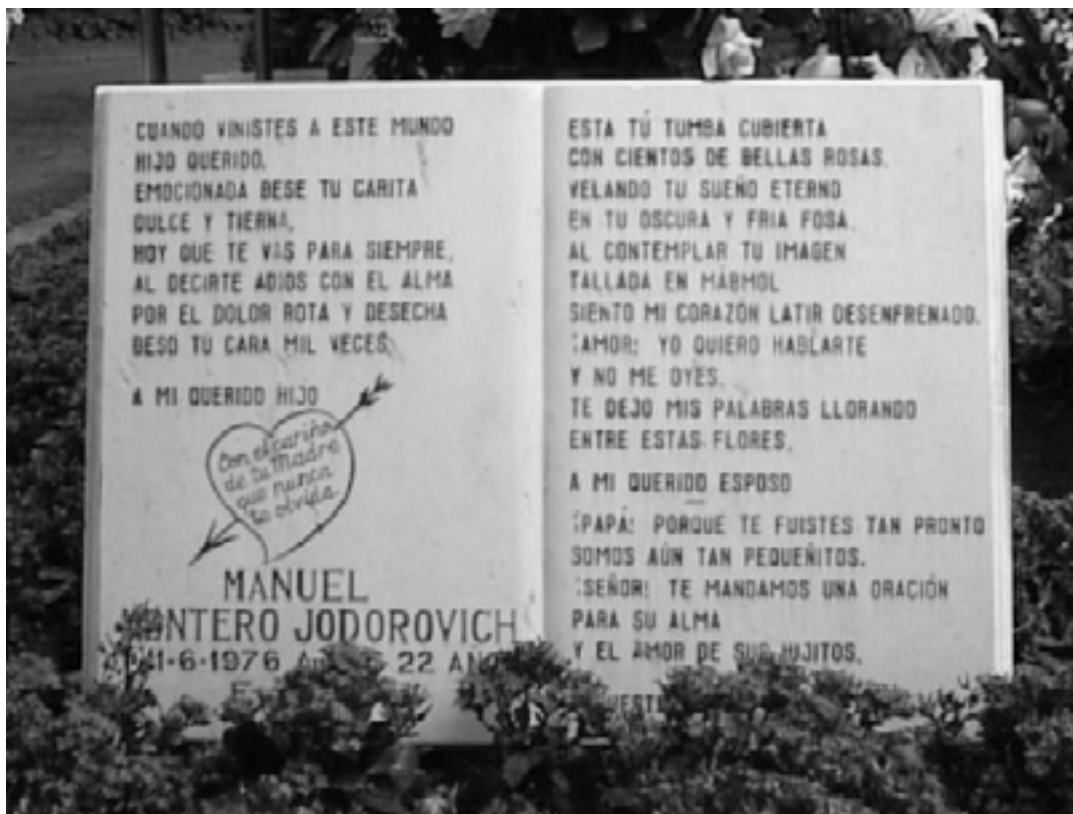 CUANDO VINISTES A ESTE MUNDO
HIJO QUERIDO,
EMOCIONADA BESE TU CARITA
DULCE Y TIERNA,
HOY QUE TE VAS PARA SIEMPRE,
AL DECIRTE ADIOS CON EL ALMA
POR EL DOLOR ROTA Y DESECHA
BESO TU CARA MIL VECES.
A MI QUERIDO HIJO
Con el cariño
de tu madre
que nunca
te olvida
MANUEL
JODOROVICH
6-1976 22
ESTA TÚ TUMBA CUBIERTA
CON CIENTOS DE BELLAS ROSAS.
VELANDO TU SUEÑO ETERNO
EN TU OSCURA Y FRIA FOSA.
AL CONTEMPLAR TU IMAGEN
TALLADA EN MÁRMOL
SIENTO MI CORAZÓN LATIR DESENFRENADO.
¡AMOR! YO QUIERO HABLARTE
Y NO ME OYES.
TE DEJO MIS PALABRAS LLORANDO
ENTRE ESTAS FLORES.
A MI QUERIDO ESPOSO
¡PAPÁ! PORQUE TE FUISTES TAN PRONTO
SOMOS AÚN TAN PEQUEÑITOS.
¡SEÑOR! TE MANDAMOS UNA ORACIÓN
PARA SU ALMA
Y EL AMOR DE SUS HIJITOS.